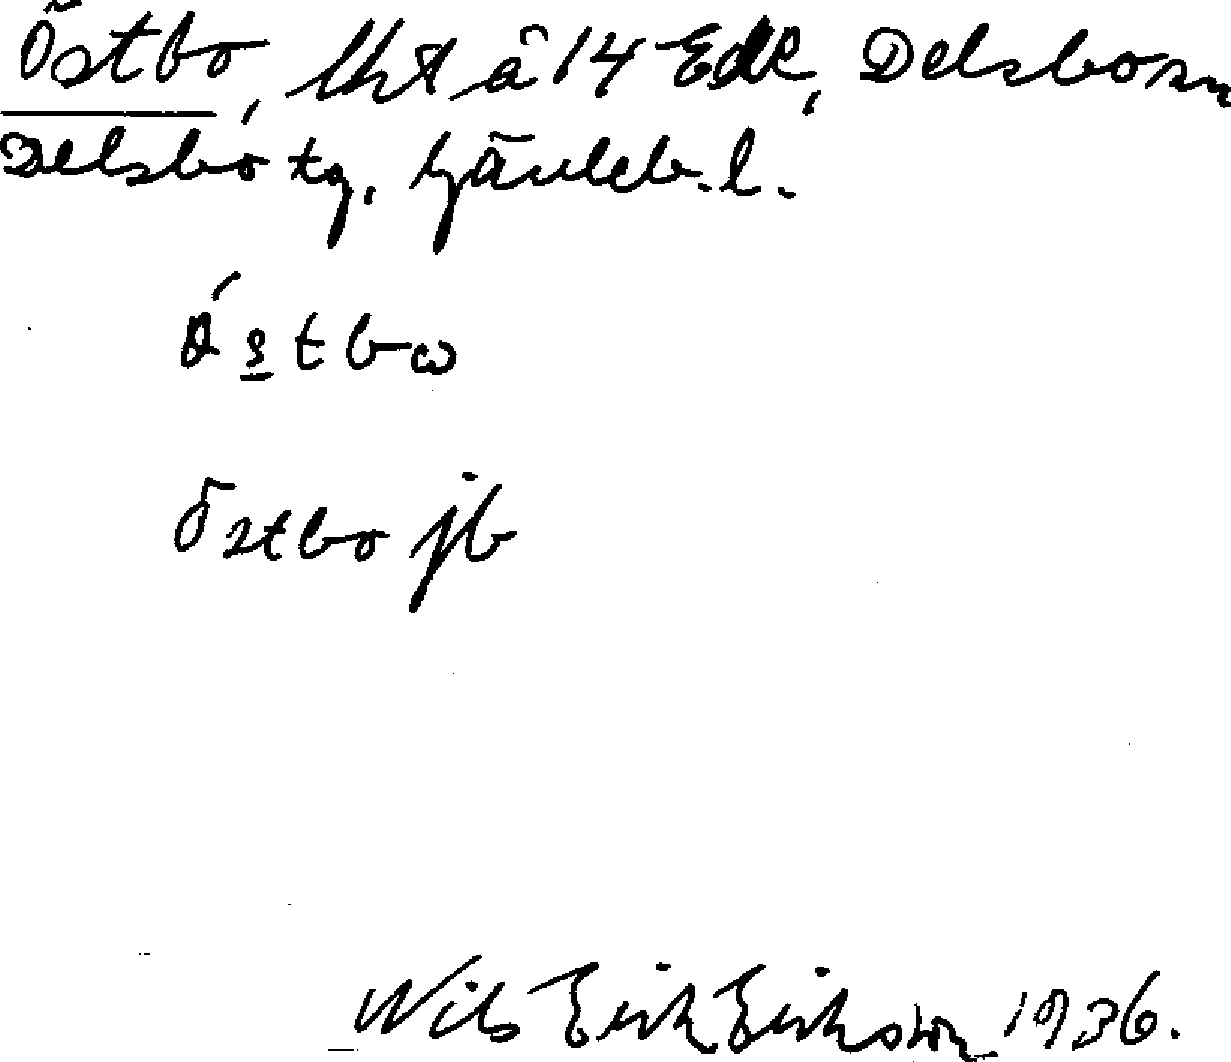 Östbo, lht å 14 Ede, Delsbo sn
Delsbo tg, Gävleb. l.
Östbo jb
Nils Erik Eriksson 1936.